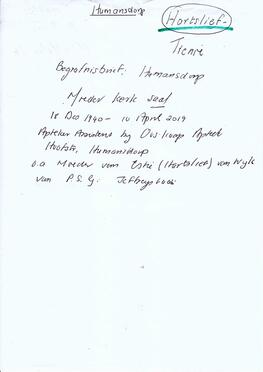 Humansdorp
Hartslief-
Tienie
Begrafnisbrief: Humansdorp
Moeder Kerk saal
18 Des 1940 - 10 April 2019
Apteker Assistent by Apteek
Humansdorp
o.a Moeder van (Hartslief) van Wyk
van P.S.G. Jeffreysbaai